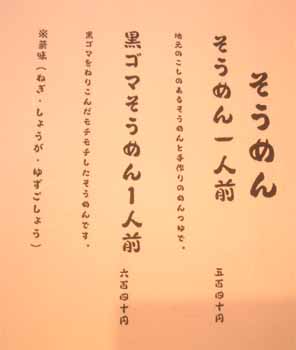 そうめん
そうめん一人前　五百四十円
地元のこしのあるそうめんと手作りのめんつゆで。
黒ゴマそうめん1人前　六百四十円
黒ゴマをねりこんだモチモチしたそうめんです。
※薬味（ねぎ・しょうが・ゆずごしょう）